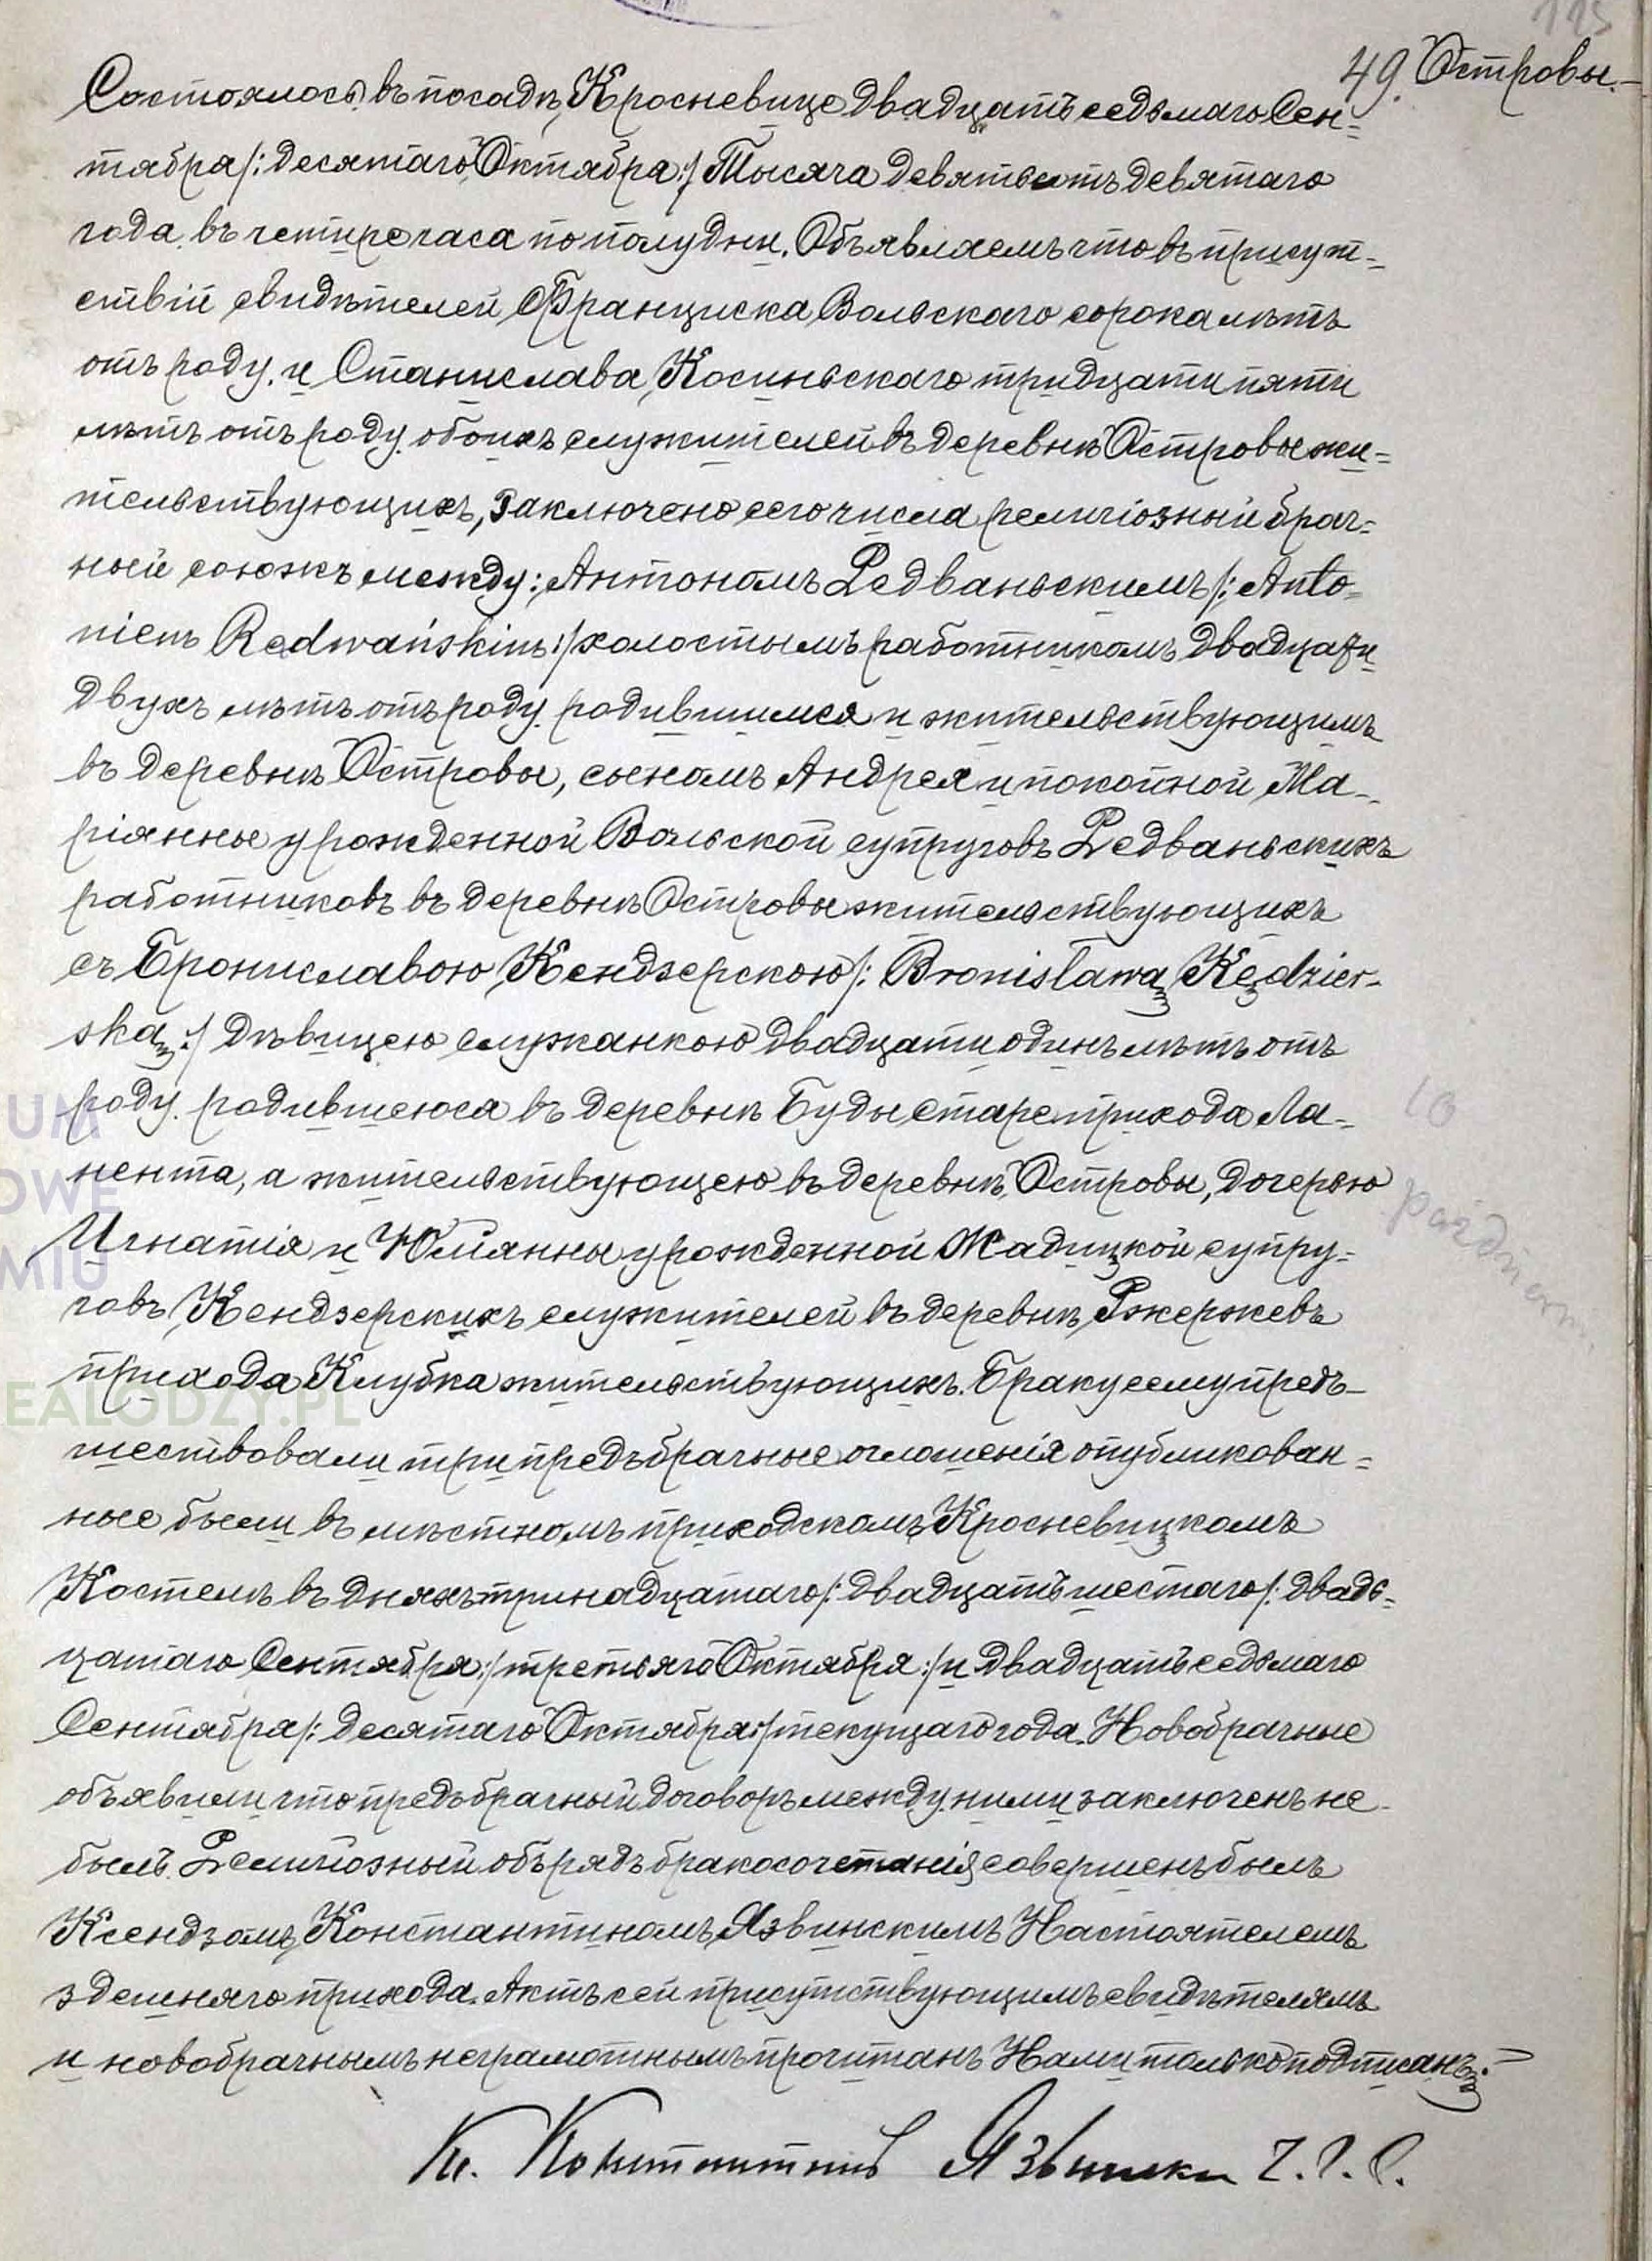 115
49. Островы.
Состоялось въ посадѣ Кросневице двадцать седьмаго Сен=
тября /: десятаго Октября :/ Тысяча девятьсотъ девятаго
года въ четире часа по полудни. Объявляемъ что въ присут=
ствіи свидѣтелей Франциска Вольскаго сорока лѣтъ
отъ роду и Станислава Косиньскаго тридцати пяти
лѣтъ отъ роду обоихъ служителей въ деревнѣ Островы жи=
тельствующихъ, Заключено сего числа религіозный брач=
ный союзъ между: Антономъ Редваньскимъ /: Anto-
niem Redwańskim :/ холостымъ работникомъ двадцати
двухъ лѣтъ отъ роду родившимся и жительствующимъ
въ деревнѣ Островы, сыномъ Андрея и покойной Ма-
ріянны урожденной Вольской супруговъ Редваньскихъ
работниковъ въ деревнѣ Островы жительствующихъ
съ Брониславою Кендзерскою /: Bronisławą Kędzier-
ską :/ дѣвицею служанкою двадцати одинъ лѣтъ отъ
роду родившеюся въ деревнѣ Буды старе прихода Ла-
нента, а жительствующею въ деревнѣ Островы, дочерью
Игнатія и Юліянны урожденной Жадицкой супру=
говъ Кендзерскихъ служителей въ деревнѣ Ржержевъ
прихода Клубка жительствующихъ. Браку сему предъ-
шествовали три предъбрачные оглошенія опубликован=
ные были въ мѣстномъ приходскомъ Кросневицкомъ
Костелѣ въ дняхъ тринадцатаго /: двадцать шестаго /: двадь=
цатаго Сентября :/ третьяго Октября :/ и двадцать седьмаго
Сентября /: десятаго Октября :/ текущаго года. Новобрачные
объявили что предъбрачный договоръ между ними заключенъ не
былъ. Религіозный обърядъ бракосочетанія совершенъ былъ
Ксендзомъ Константиномъ Язвинскимъ Настоятелемъ
здешняго прихода. Актъ сей присутствующимъ свидѣтелямъ
и новобрачнымъ неграмотнымъ прочитанъ Нами только подписанъ.
10
paźdiern
UM
OWE
MIU
EALODZY.PL
Кс. Константинъ Язвински